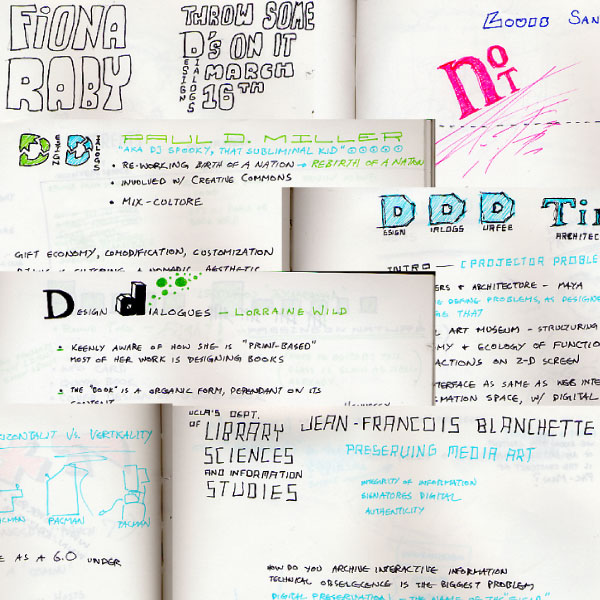 FIONA
RABY
THROW SOME
D'S ON IT
DESIGN
DIALOGS
MARCH
16TH
SAN
NOT
DESIGN
DIALOGS
PAUL D. MILLER
"AKA DJ SPOOKY, THAT SUBLIMINAL KID"
• RE-WORKING BIRTH OF A NATION → REBIRTH OF A NATION
• INVOLVED W/ CREATIVE COMMONS
• MIX-CULTURE
GIFT ECONOMY, COMODIFICATION, CUSTOMIZATION
A NOMADIC AESTHETIC
DESIGN DIALOGS DURFEE
TI
ARCHITEC
INTRO — (PROJECTOR PROBLE
ERS & ARCHITECTURE - MAYA
DEFINING PROBLEMS, AS DESIGNE
GE THAT
ART MUSEUM - STRUCTURING
MY & ECOLOGY OF FUNCTIO
ACTIONS ON 2-D SCREEN
TERFACE AS SAME AS WEB INTE
MATION SPACE, W/ DIGITAL
DESIGN DIALOGUES - LORRAINE WILD
KEENLY AWARE OF HOW SHE IS "PRINT-BASED"
MOST OF HER WORK IS DESIGNING BOOKS
THE "BOOK" IS A ORGANIC FORM, DEPENDANT ON ITS
CONTENT
RICONTALIT VS. VERTICALITY
ACMAN
PACMAN
PACMAN
E AS A 6.0 UNDER
UCLA'S DEPT.
OF LIBRARY
SCIENCES
AND INFORMATION
STUDIES
JEAN-FRANCOIS BLANCHETTE
PRESERVING MEDIA ART
INTEGRITY OF INFORMATION
SIGNATURES DIGITAL
AUTHENTICITY
HOW DO YOU ARCHIVE INTERACTIVE INFORMATION
TECHNICAL OBSELECENCE IS THE BIGGEST PROBLEM
DIGITAL PRESERVATION - THE NAME OF THE "FIELD"